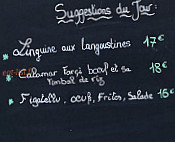 Suggestions du Jour:
* Linguine aux langoustines 17€
* Calamar Farçi bœuf et sa 18€
Timbal de riz
* Figatellu, œufs, Frites, Salade 15€